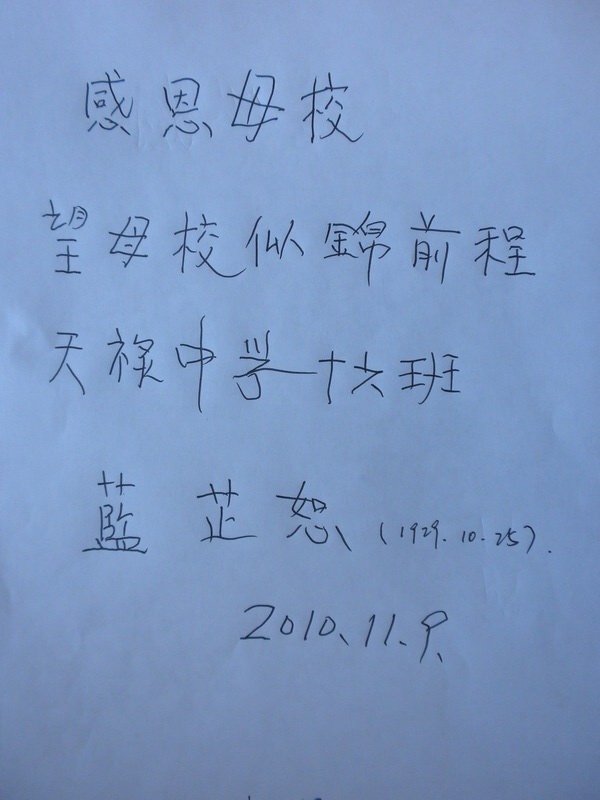 感恩母校
望母校似錦前程
天祿中学十六班
藍芷恕 (1929.10.25).
2010.11.9.